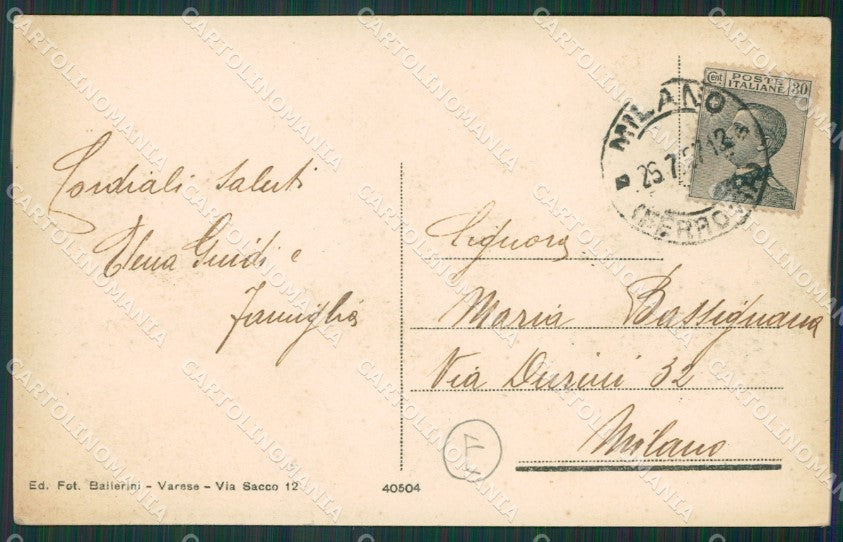 Cordiali saluti
Elena Guidi e
famiglia
Ed. Fot. Ballerini - Varese - Via Sacco 12
40504
cent POSTE ITALIANE 30
MILANO
25.7.27.12
(FERROVIA)
Signora
Maria Bassignana
Via Durini 32
Milano
CARTOLINOMANIA